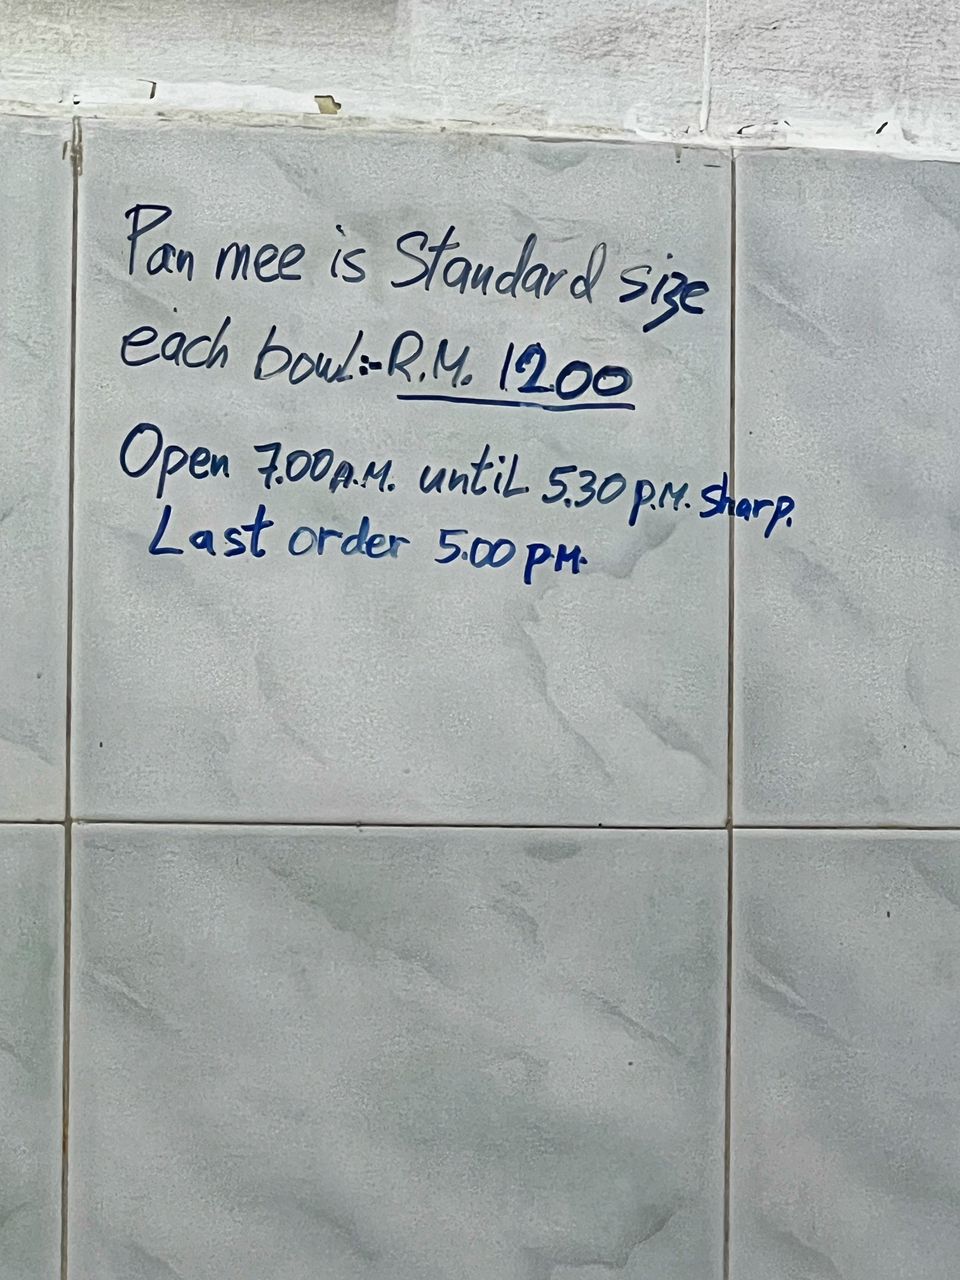 Pan mee is Standard size
each bowl:- R.M. 12.00
Open 7.00 A.M. until 5.30 p.M. sharp.
Last order 5.00 p.M.